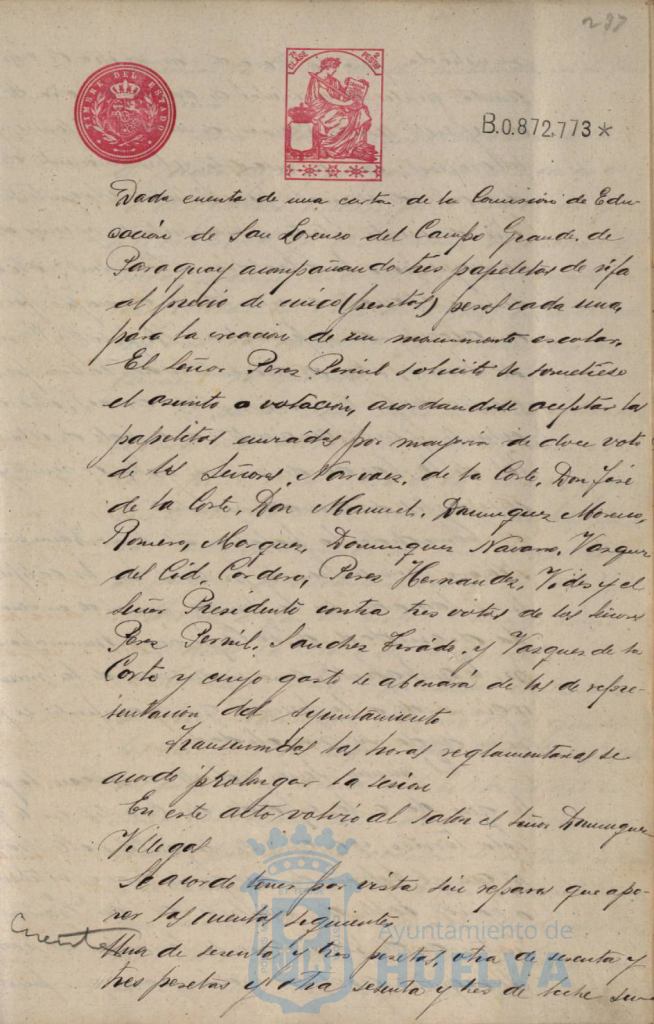 237
TIMBRE DEL ESTADO
7ª CLASE 2 PESETAS
B.0.872,773*
Dada cuenta de una carta de la Comisión de Edu-
cación de San Lorenzo del Campo Grande, de
Paraguay acompañando tres papeletas de rifa
al precio de cinco (pesetas) pesos cada una,
para la creación de un monumento escolar.
El Señor Perez Pernil solicitó se sometiese
el asunto a votación, acordandose aceptar las
papeletas enviadas por mayoria de doce votos
de los Señores, Narvaez, de la Corte, Don José
de la Corte, Don Manuel, Dominguez Moreno,
Romero, Marquez, Dominguez Navarro, Vazquez
del Cid, Cordero, Perez Hernandez, Vides y el
Señor Presidente contra tres votos de los Señores
Perez Pernil, Sanchez y Vazquez de la
Corte y cuyo gasto se abonará de los de repre-
sentación del Ayuntamiento
Transcurridas las horas reglamentarias se
acordó prolongar la sesion
En este acto volvió al salon el Señor Dominguez
Villegas
Se acordo tener por vista sin reparo que opo-
ner las cuentas siguientes
Cuentas
Una de sesenta y tres pesetas, otra de sesenta y
tres pesetas y otra sesenta y tres de leche
Ayuntamiento de
HUELVA